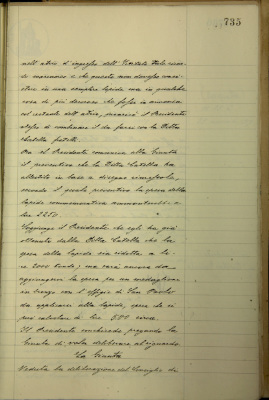 735
nell'atrio d'ingresso dell'
e che questo non dovesse consi-
stere in una semplice lapide ma in qualche
cosa di più decoroso che fosse in armonia
col restante dell'atrio, incaricò il Presidente
stesso di combinare il da farsi con la Ditta
Catella fratelli.
Ora il Presidente comunica alla Giunta
il preventivo che la Ditta Catella ha
allestito in base a disegno
secondo il quale preventivo la spesa della
lapide commemorativa ammonterebbe a
lire 2250.
Soggiunge il Presidente che egli ha già
ottenuto dalla Ditta Catella che la
spesa della lapide sia ridotta a li-
re 2000 ma sarà ancora da
aggiungersi la spesa per un medaglione
in bronzo con l'effigie di San Paolo
da applicarsi alla lapide, spesa che si
può calcolare di lire 600 circa.
Il Presidente conchiude, pregando la
Giunta di voler deliberare al riguardo.
La Giunta
Veduta la deliberazione del Consiglio di